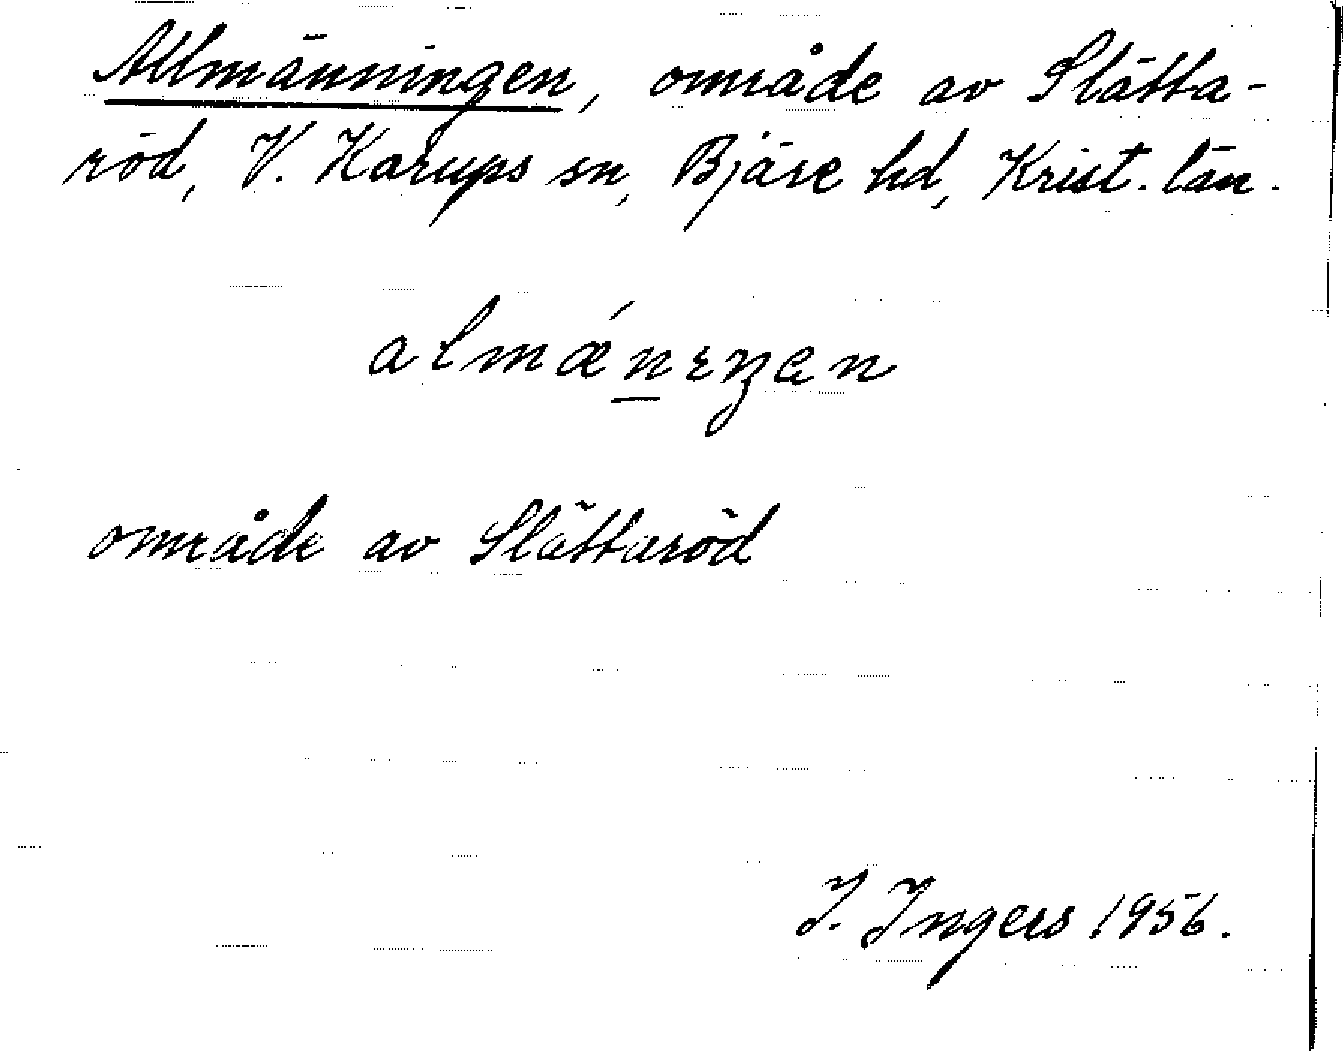 Allmänningen, område av Slätta-
röd, V. Karups sn, Bjäre hd, Krist. län.
almǽnɪŋən
område av Slättaröd
I. Ingers 1956.